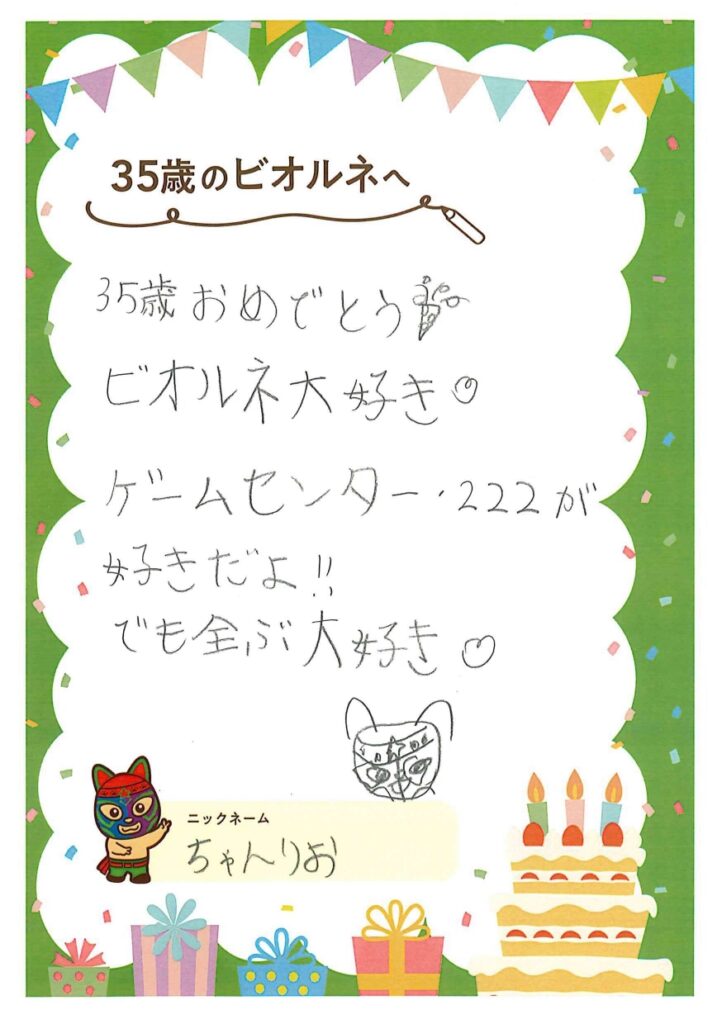 35歳のビオルネへ
35歳おめでとう
ビオルネ大好き♡
ゲームセンター・222が
好きだよ!!
でも全ぶ大好き♡
ニックネーム
ちゃんりお